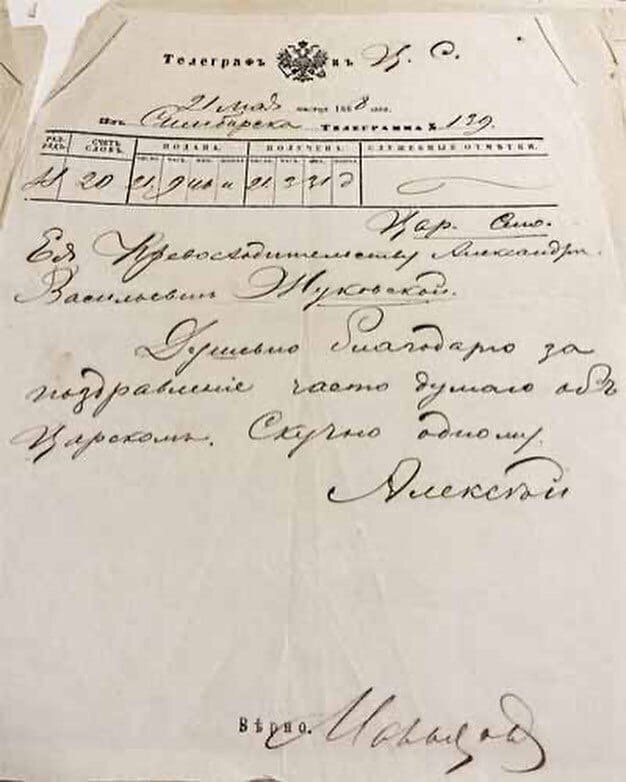 Телеграфъ въ Ц. С.
21 Мая 1868 года.
Изъ Симбирска Телеграмма № 139.
РАЗРЯДЪ. СЧЕТЪ СЛОВЪ. ПОДАНА. ПОЛУЧЕНА. СЛУЖЕБНЫЯ ОТМѢТКИ.
20 21 9 21 3 31 д
Цар. Село.
Ея Превосходительству Александрѣ
Васильевнѣ Жуковской.
Душевно благодарю за
поздравленіе часто думаю объ
Царскомъ. Скучно одному.
Алексѣй
Вѣрно.